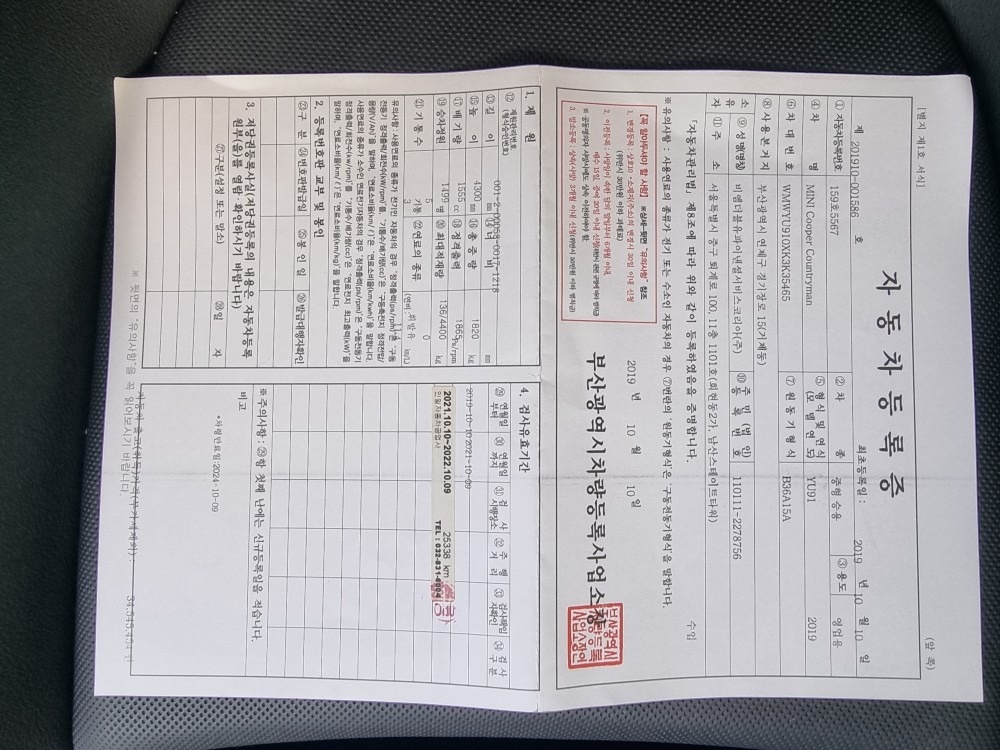 [별지 제1호 서식]
(앞 쪽)
자 동 차 등 록 증
제 201910-001586 호
최초등록일 : 2019 년 10 월 10 일
① 자동차등록번호 159호5567 ② 차 종 중형 승용 ③ 용도 영업용
④ 차 명 MINI Cooper Countryman ⑤ 형식 및 연식 (모델연도) YU91 2019
⑥ 차 대 번 호 WMWYU910XK3K35465 ⑦ 원 동 기 형 식 B36A15A
⑧ 사 용 본 거 지 부산광역시 연제구 경기장로 15(거제동)
소유자 ⑨ 성명(명칭) 비엠더블유파이낸셜서비스코리아(주) ⑩ 주민(법인)등록번호 110111-2278756
⑪ 주 소 서울특별시 중구 퇴계로 100, 11층 1101호(회현동2가, 남산스테이트타워)
「자동차관리법」 제8조에 따라 위와 같이 등록하였음을 증명합니다.
수입
※ 유의사항 : 사용연료의 종류가 전기 또는 수소인 자동차의 경우 ⑦번란의 '원동기형식'은 '구동전동기형식'을 말합니다.
[꼭 알아두셔야 할 사항] ※상세-뒷면 "유의사항" 참조
2019 년 10 월 10 일
부산광역시차량등록사업소장
1. 제 원
⑫ 제원관리번호 (형식승인번호) 001-2-00058-0017-1218
⑬ 길 이 4300 mm ⑭ 너 비 mm
⑮ 높 이 mm ⑯ 총 중 량 1820 kg
⑰ 배 기 량 1499 cc ⑱ 정격출력 136/4400 ps/rpm
⑲ 승차정원 5 명 ⑳ 최대적재량 0 kg
㉑ 기 통 수 3 기통 ㉒ 연료의 종류 휘발유
2. 등록번호판 교부 및 봉인
㉓ 구 분 ㉔ 번호판발급일 ㉕ 봉 인 일 ㉖ 발급대행자확인
3. 저당권등록사실(저당권등록의 내용은 자동차등록원부(을)를 열람·확인하시기 바랍니다)
㉗ 구분(설정 또는 말소) ㉘ 일 자
4. 검사유효기간
㉙ 연월일부터 ㉚ 연월일까지 ㉛ 검사시행장소 ㉜ 주행거리 ㉝ 검사책임자확인 ㉞ 검사구분
2019-10-10 2021-10-09
2021.10.10~2022.10.09 25338 km
TEL : 032-831-0004
※ 주의사항 : ㉙항 첫째 난에는 신규등록일을 적습니다.
비고
*차령만료일:2024-10-09